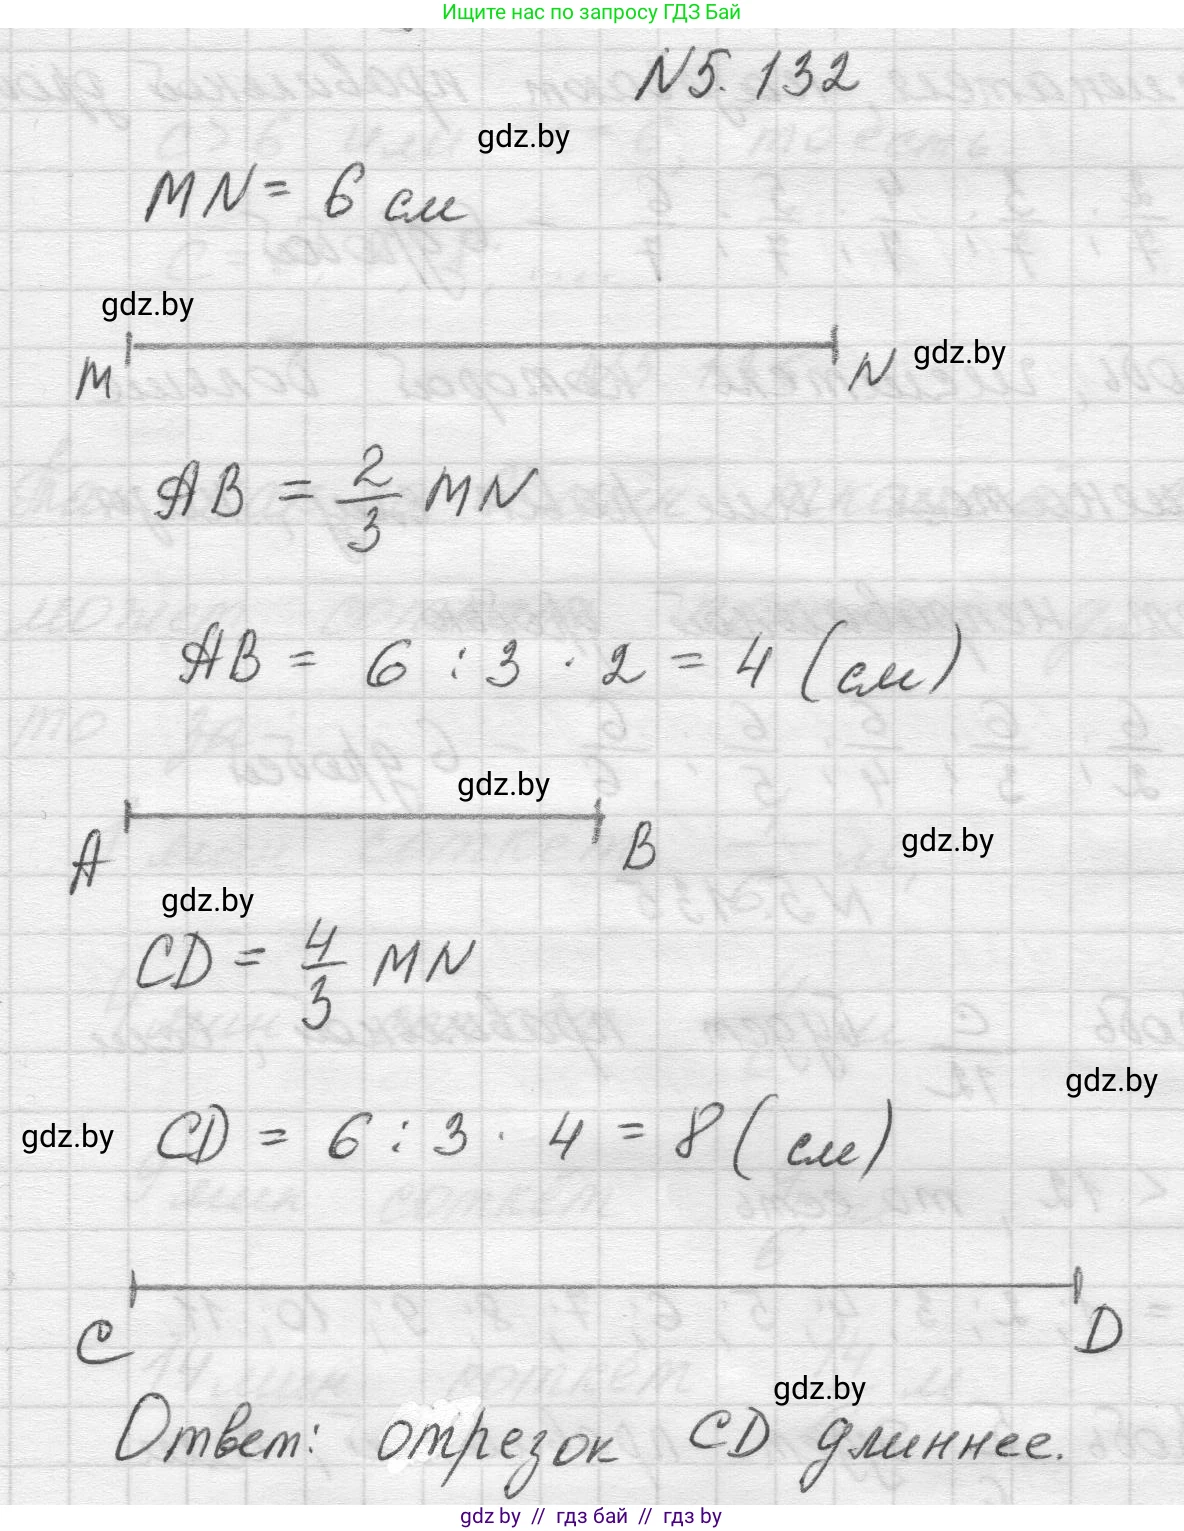 Ищите нас по запросу ГДЗ Бай
№5.132
gdz.by
MN = 6 см
gdz.by
M N gdz.by
AB = 2/3 MN
AB = 6 : 3 · 2 = 4 (см)
gdz.by
A B gdz.by
gdz.by
CD = 4/3 MN
gdz.by
gdz.by CD = 6 : 3 · 4 = 8 (см)
C D
gdz.by
Ответ: отрезок CD длиннее.
gdz by // гдз бай // gdz by